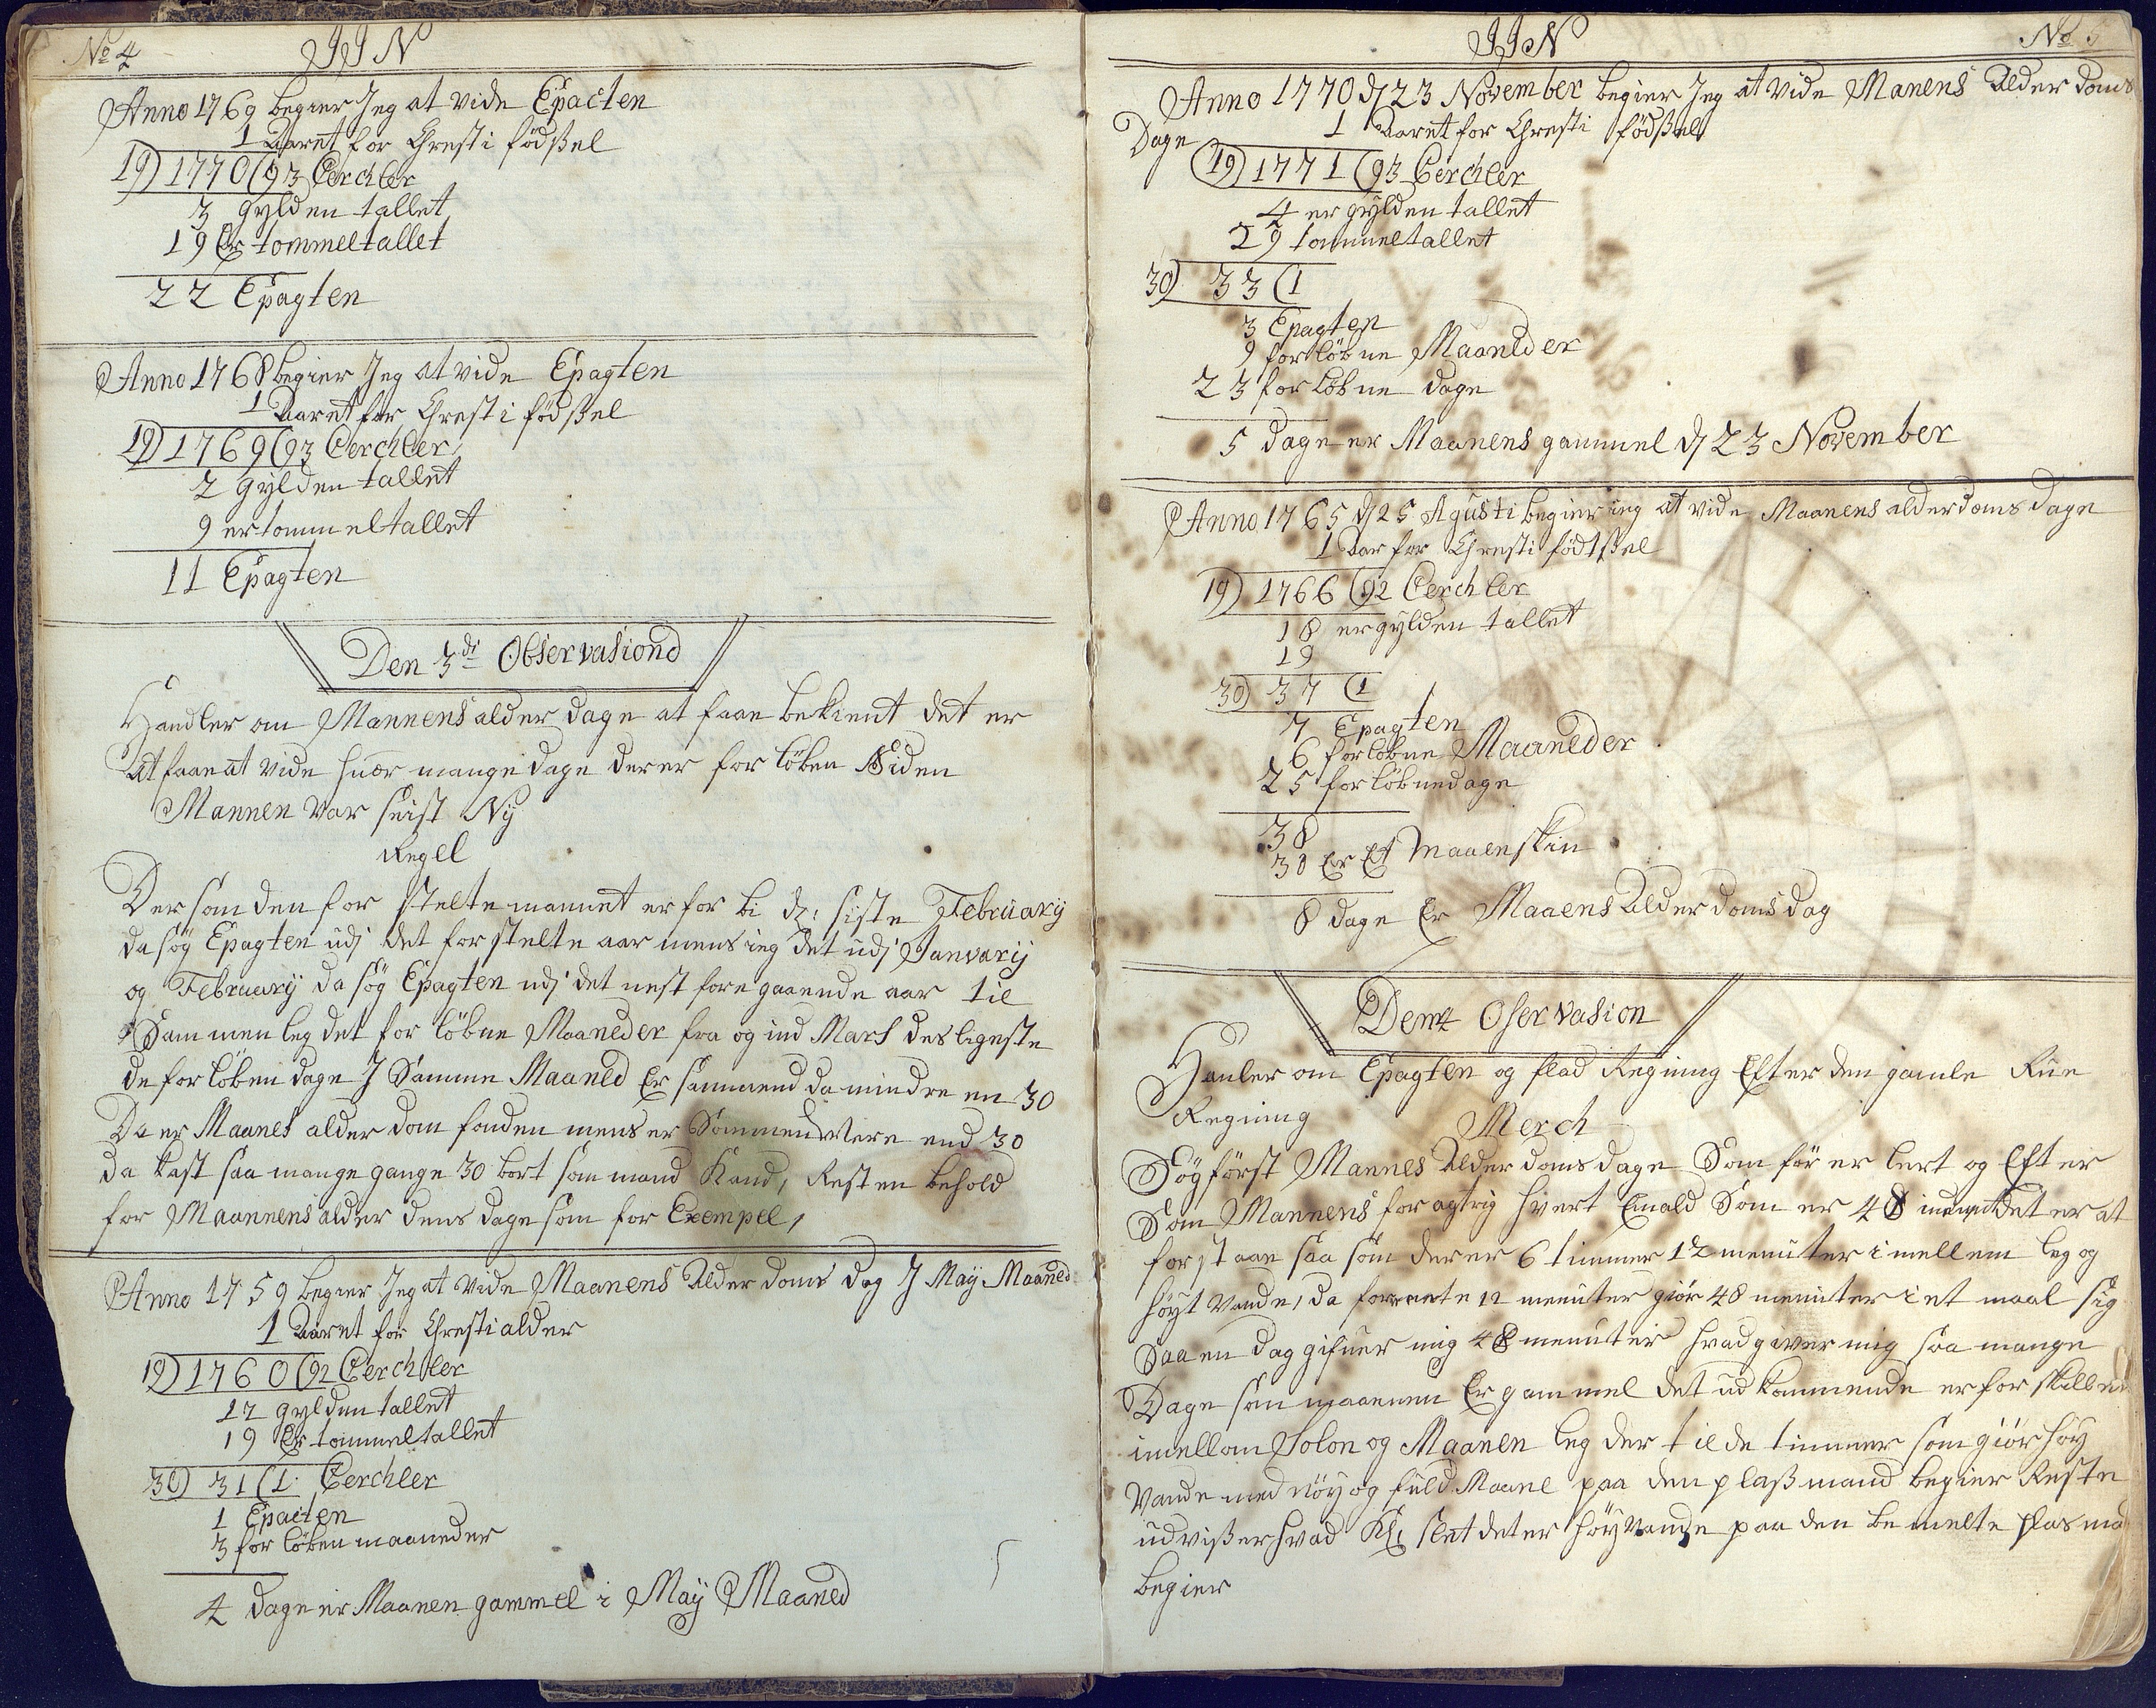 No 4
JJN
Anno 1769 begier Jeg at vide Epacten
1 Aaret for Chresti födsel
19) 1770 (93 Cerchler
3 gylden tallet
19 Er tommeltallet
22 Epagten
Anno 1768 begier Jeg at vide Epagten
1 Aaret for Chresti födsel
19) 1769 (93 Cerchler
2 gylden tallet
9 er tommeltallet
11 Epagten
Den 3di Observasiond
Handler om Mannens alder dage at faae bekient det er
at faae at vide huor mange dage der er for löben Siden
Mannen var seist Ny
Regel
Der som den for stelte mannet er for bi d: siste Februarij
da søg Epagten udj det for stelte aar mens ieg det udj Janvarij
og Februarij da søg Epagten udj det nest fore gaaende aar til
Sammen leg det for löbne Maaneder fra og ind Mars des ligeste
de for löben dage J Samme Maaned Er sammend da mindre en 30
Da er Maanes alder dom fonden mens er Sommend Mere end 30
da kast saa mange gange 30 bort som mand Kand, Resten behold
for Maannens alder dens dage som for Exempel,
Anno 1759 begier Jeg at vide Maanens Alder doms dag J May Maaned
1 Aaret for Chresti alder
19) 1760 (92 Cerchler
12 gylden tallet
19 Er tommeltallet
30) 31 (1 Cerchler
1 Epacten
3 for löben maaneder
4 dage er Maanen gammel i May Maaned
JJN
No 5
Anno 1770 d 23 November begier Jeg at vide Manens Alder doms
Dage
1 Aaret for Chresti födsel
19) 1771 (93 Cerchler
4 er gylden tallet
29 tommeltallet
30) 33 (1
3 Epagten
9 forlöbne Maaneder
23 for löbne dage
5 dage er Maanens gammel d 23 November
Anno 1765 d 25 Agusti begier ieg at vide Maanens alderdoms dage
1 Aar for Chresti födtsel
19) 1766 (92 Cerchler
18 er gylden tallet
19
30) 37 (1
7 Epagten
6 forlöbne Maaneder
25 for löbne dage
38
30 Er Et Maaenskin
8 dage Er Maaens Alder doms dag
Den 4 Oservasion
Hanler om Epagten og flod Regning Efter den gamle Rue
Regning
Merch
Søg först Mannes Alder doms dage Som för er lert og Efter
Som Mannens for agtrig hvert Emald Som er 48 det er at
forstaae saa som der er 6 timmer 12 menuter i mellem leg og
höyt vande, da for 12 menuter giör 48 menuter i et maal sig
Saa en dag gifuer mig 48 menuter hvad giver mig saa mange
Dage som maanenn Er gammel det ud kommende er for skillen
imellom Solon og Maanen leg der til de timmer som giör höy
Vande med nöy og fuld Maane paa den plass mand begier Resten
udvisser hvad Kl: slet det er höy vande paa den be melte plas ma
begier